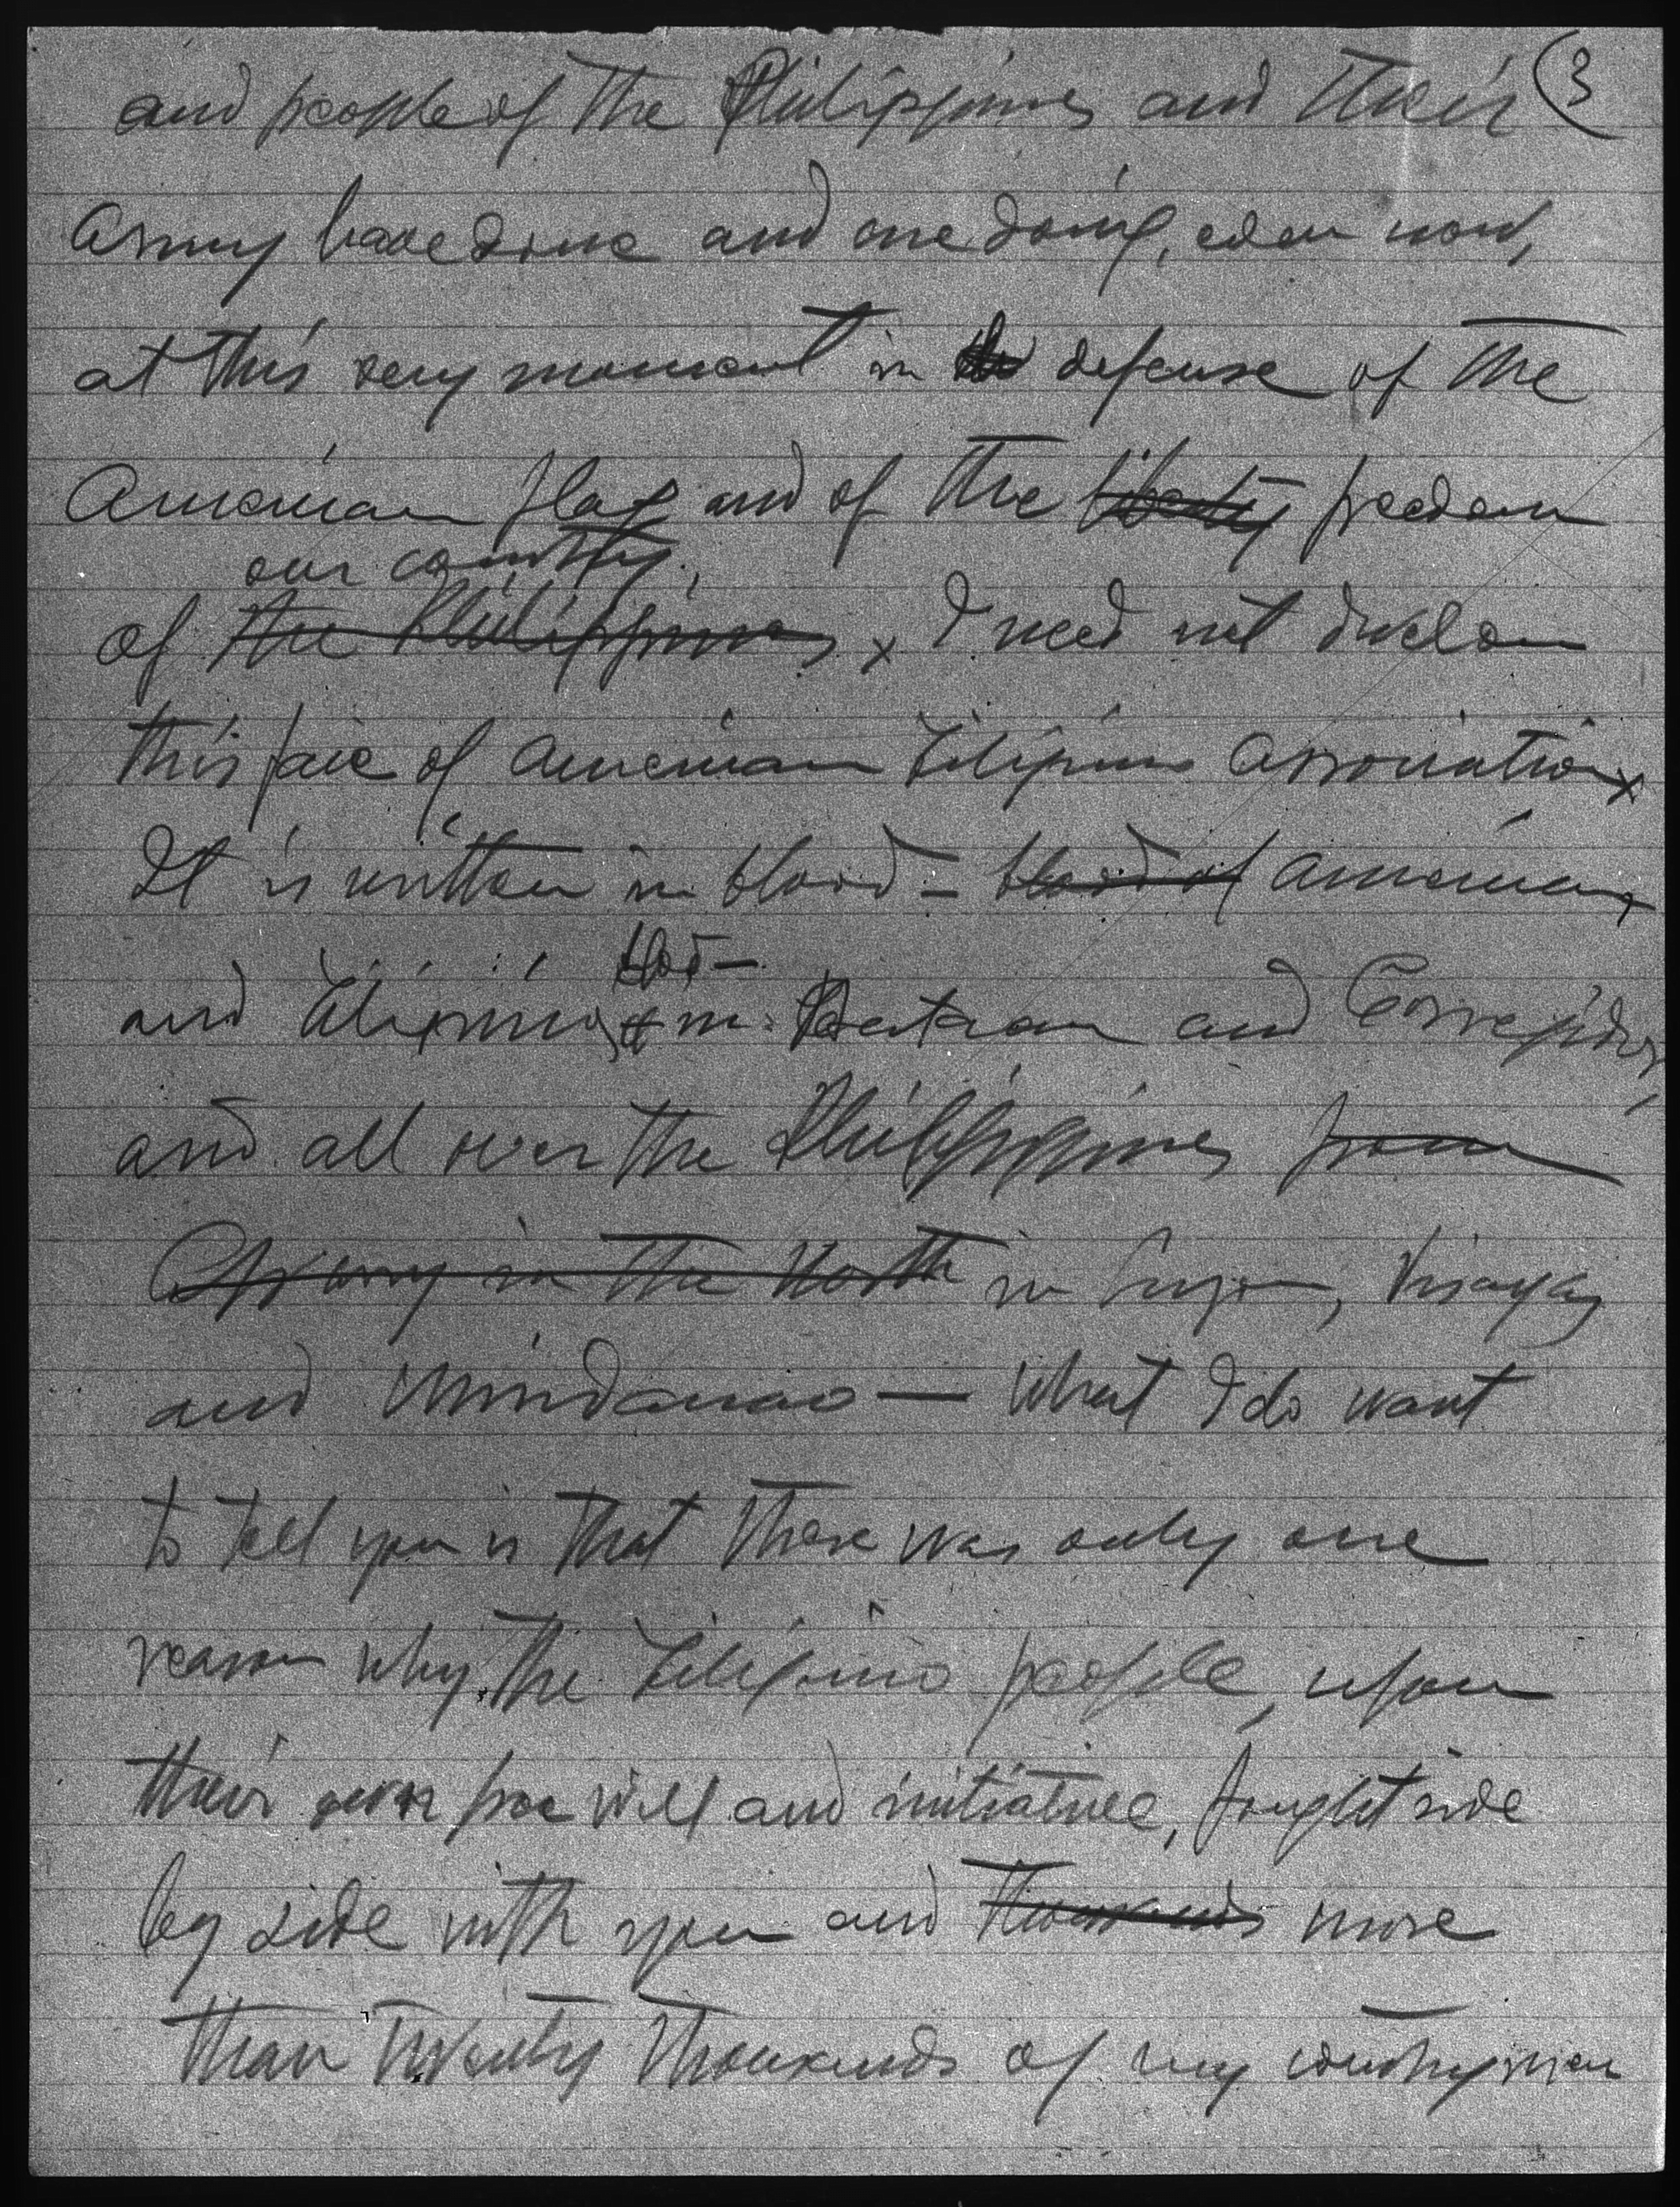 and people of the Philippines and their (3
Army have done and are doing, even now,
at this very moment in the defense of the
American flag and of the liberty freedom
our country.
of the Philippines x I need not
this of American Filipino Association x
It is written in blood - blood of American
blood -
and Filipino in Bataan and Corregidor,
and all over the Philippines from
Aparry in the North in Luzon, Visayas
and Mindanao — What I do want
to tell you is that there was only one
reason why the Filipino people, upon
their own free will and initiative, fought side
by side with you and thousands more
than twenty thousands of my countrymen